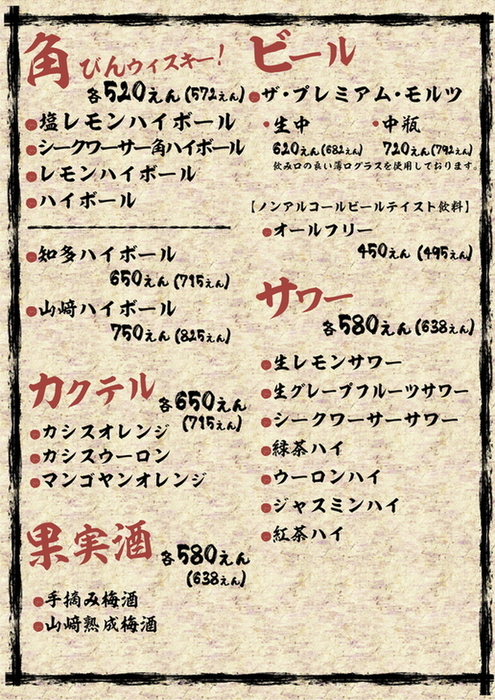 角びんウィスキー！
各520えん(572えん)
●塩レモンハイボール
●シークワーサー角ハイボール
●レモンハイボール
●ハイボール
●知多ハイボール
650えん(715えん)
●山﨑ハイボール
750えん(825えん)
カクテル 各650えん
(715えん)
●カシスオレンジ
●カシスウーロン
●マンゴヤンオレンジ
果実酒 各580えん
(638えん)
●手摘み梅酒
●山﨑熟成梅酒
ビール
●ザ・プレミアム・モルツ
●生中 ●中瓶
620えん(682えん) 720えん(792えん)
飲み口の良い薄口グラスを使用しております。
【ノンアルコールビールテイスト飲料】
●オールフリー
450えん(495えん)
サワー
各580えん(638えん)
●生レモンサワー
●生グレープフルーツサワー
●シークワーサーサワー
●緑茶ハイ
●ウーロンハイ
●ジャスミンハイ
●紅茶ハイ